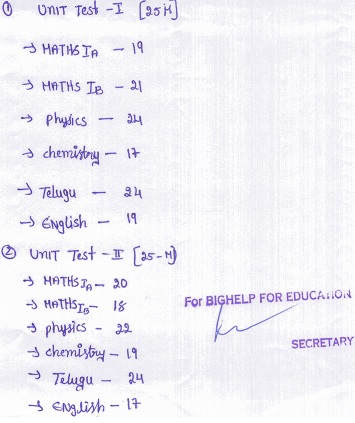 ① UNIT Test - I [25M]
→ MATHS IA - 19
→ MATHS IB - 21
→ Physics - 24
→ chemistry - 17
→ Telugu - 24
→ English - 19
② UNIT Test - II [25-M]
→ MATHS IA - 20
→ MATHS IB - 18
→ physics - 22
→ chemistry - 19
→ Telugu - 24
→ English - 17
For BIGHELP FOR EDUCATION
SECRETARY